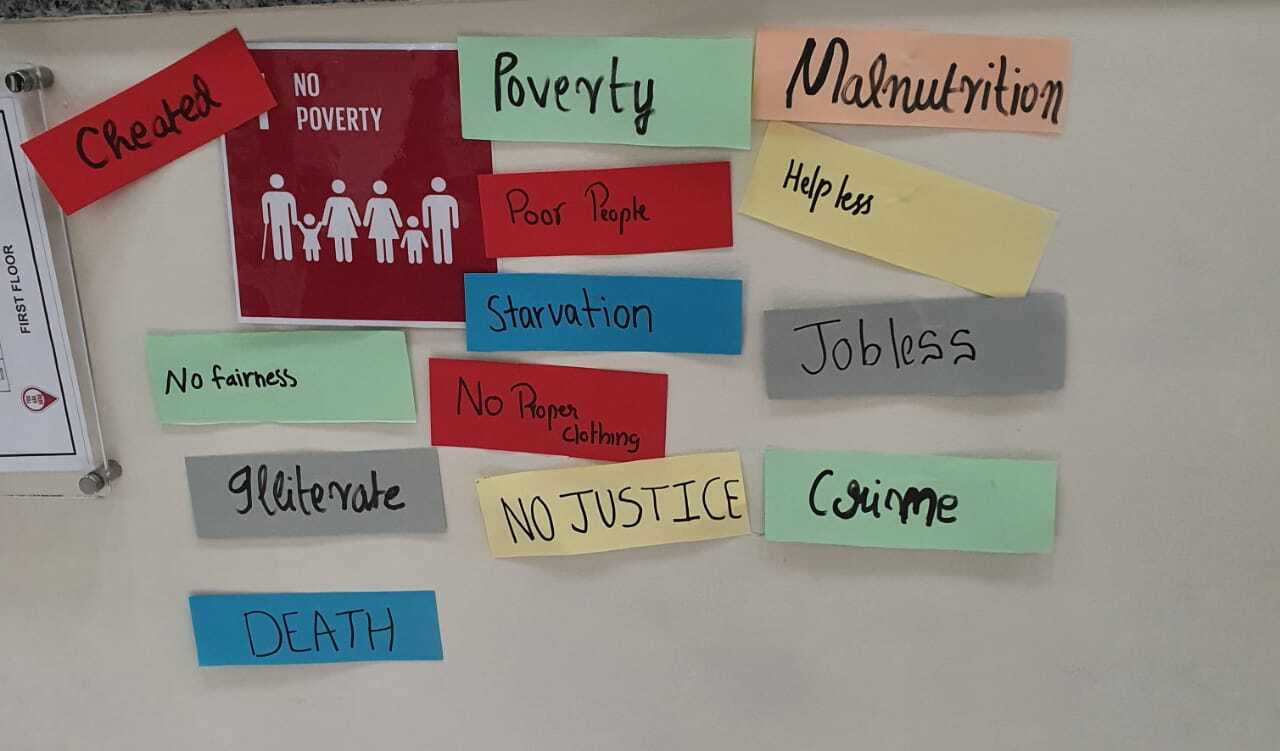 Cheated
NO
POVERTY
Poverty
Malnutrition
Poor People
Help less
Starvation
Jobless
No fairness
No Proper
Clothing
Illiterate
NO JUSTICE
Crime
DEATH
FIRST FLOOR